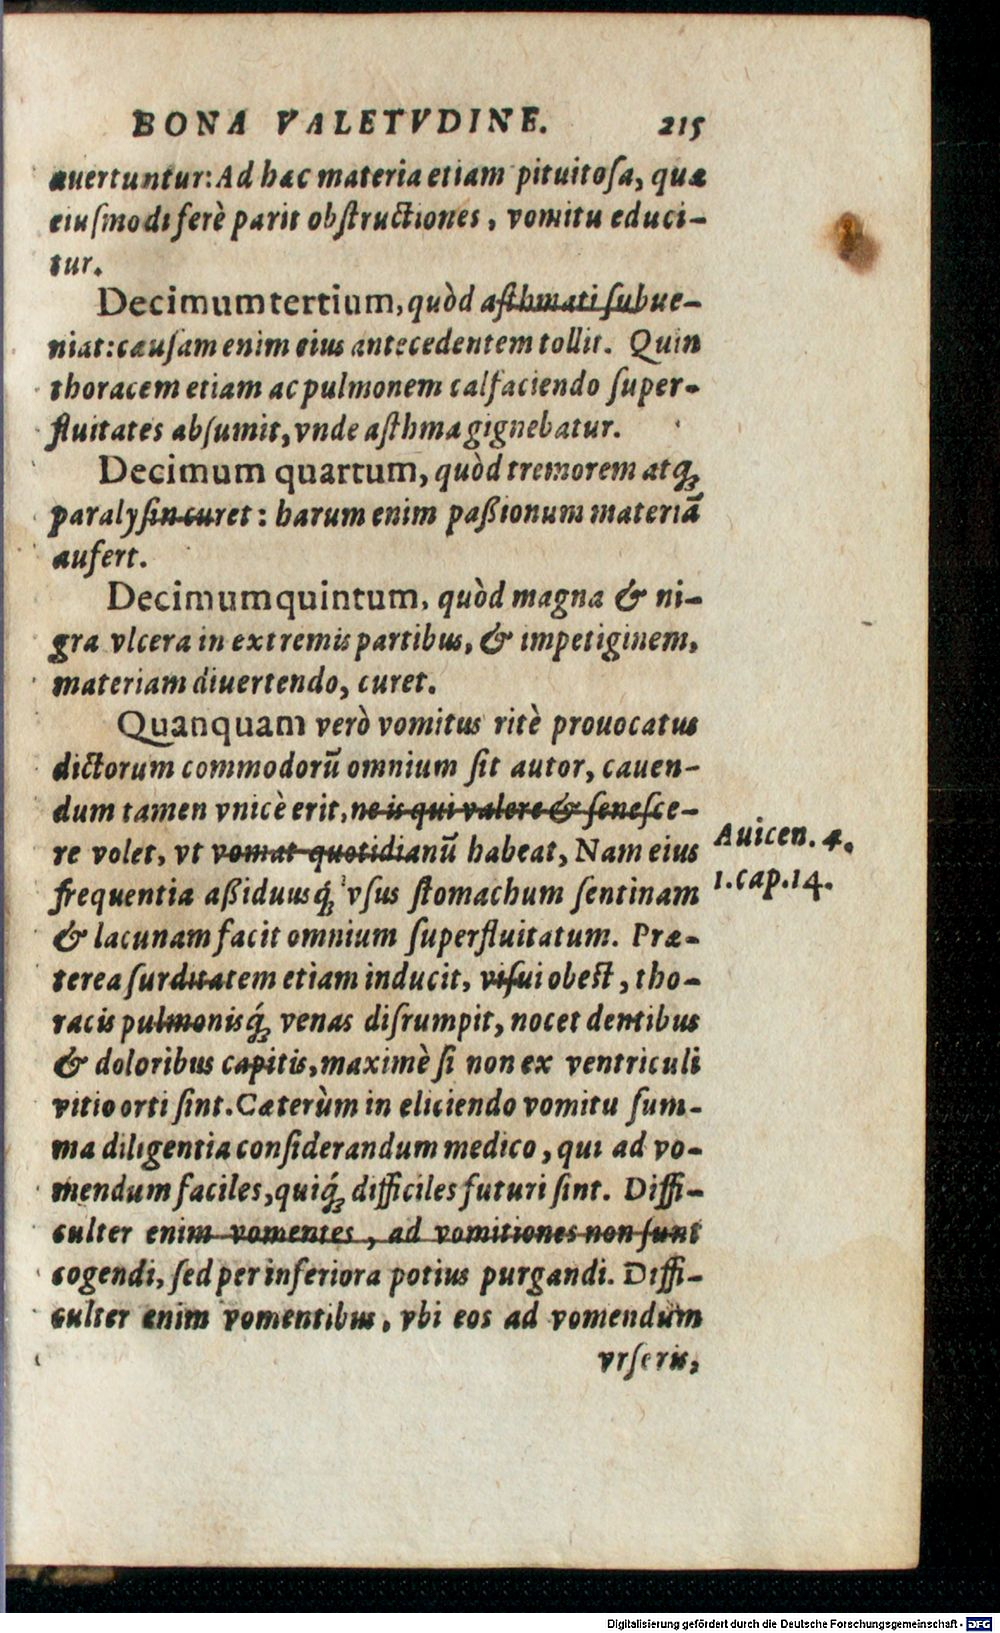 BONA VALETVDINE. 215
auertuntur: Ad hæc materia etiam pituitoſa, quæ
eiuſmodi ferè parit obſtructiones, vomitu educi-
tur.
Decimumtertium, quòd aſthmati ſubue-
niat: cauſam enim eius antecedentem tollit. Quin
thoracem etiam ac pulmonem calfaciendo ſuper-
fluitates abſumit, vnde aſthma gignebatur.
Decimum quartum, quòd tremorem atq́;
paralyſin curet: harum enim paßionum materiā
aufert.
Decimumquintum, quòd magna & ni-
gra vlcera in extremis partibus, & impetiginem,
materiam diuertendo, curet.
Quanquam verò vomitus ritè prouocatus
dictorum commodorū omnium ſit autor, cauen-
dum tamen vnicè erit, ne is qui valere & ſeneſce-
re volet, vt vomat quotidianū habeat, Nam eius
frequentia aßiduusq́; vſus ſtomachum ſentinam
& lacunam facit omnium ſuperfluitatum. Præ-
terea ſurditatem etiam inducit, viſui obeſt, tho-
racis pulmonisq́; venas diſrumpit, nocet dentibus
& doloribus capitis, maximè ſi non ex ventriculi
vitio orti ſint. Cæterùm in eliciendo vomitu ſum-
ma diligentia conſiderandum medico, qui ad vo-
mendum faciles, quiq́; difficiles futuri ſint. Diffi-
culter enim vomentes, ad vomitiones non ſunt
cogendi, ſed per inferiora potius purgandi. Diffi-
culter enim vomentibus, vbi eos ad vomendum
vrſeris,
Auicen. 4.
1. cap. 14.
Digitalisierung gefördert durch die Deutsche Forschungsgemeinschaft - DFG